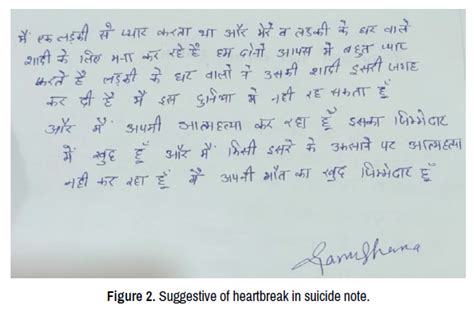 मैं एक लड़की से प्यार करता था और मेरे व लड़की के घर वाले
शादी के लिए मना कर रहे है हम दोनो आपस में बहुत प्यार
करते है लड़की के घर वालो ने उसकी शादी दूसरी जगह
कर दी है मैं इस दुनिया मे नही रह सकता हूँ
और मैं अपनी आत्महत्या कर रहा हूँ इसका जिम्मेदार
मैं खुद हूँ और मैं किसी दूसरे के उकसाने पर आत्महत्या
नही कर रहा हूँ मैं अपनी मौत का खुद जिम्मेदार हूँ
Figure 2. Suggestive of heartbreak in suicide note.